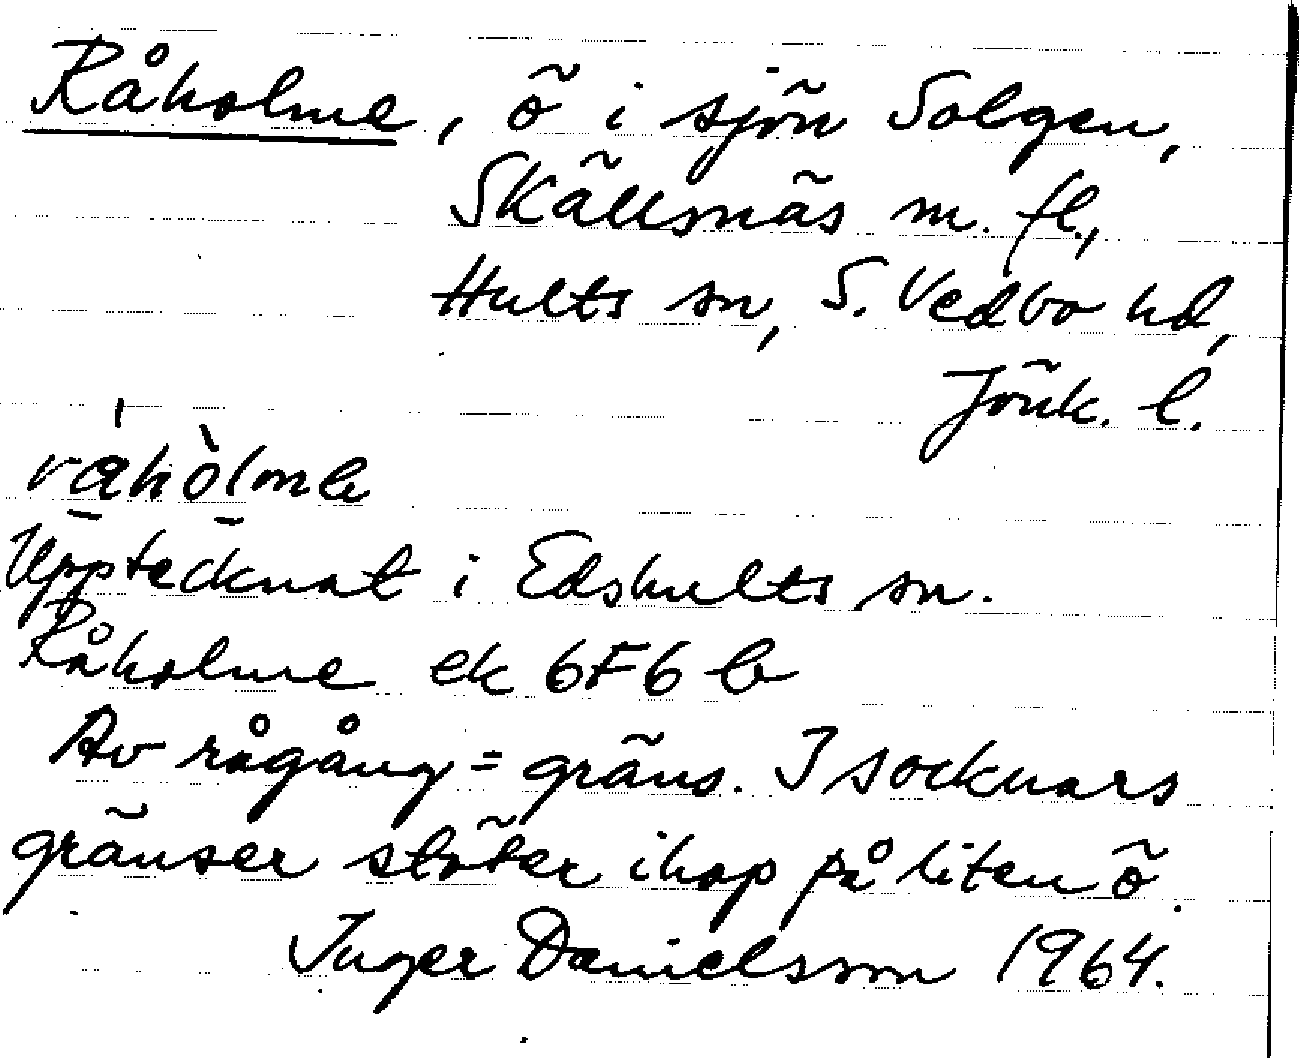 Råholme, ö i sjön Solgen,
Skällsnäs m. fl.,
Hults sn, S. Vedbo hd,
Jönk. l.
råhòlme
Upptecknat i Edshults sn.
Råholme ek 6F6b
Av rågång = gräns. 3 socknars
gränser stöter ihop på liten ö.
Inger Danielsson 1964.